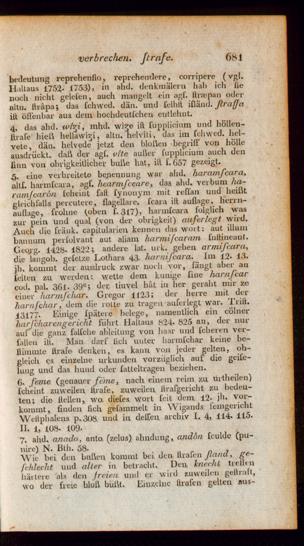 verbrechen. strafe. 681
bedeutung reprehensio, reprehendere, corripere (vgl.
Haltaus 1752. 1753), in ahd. denkmälern hab ich sie
noch nicht gelesen, auch mangelt ein agf. stræpan oder
altn. strâpa; das schwed. dän. und selbst isländ. straffa
ist offenbar aus dem hochdeutschen entlehnt.
4. das ahd. wîzi, mhd. wîze ist supplicium und höllen-
strafe hieß hellawîzi, altn. helvîti, das im schwed. hel-
vete, dän. helvede jetzt den bloßen begriff von hölle
ausdrückt. daß der agf. vîte außer supplicium auch den
sinn von obrigkeitlicher buße hat, ist s. 657 gezeigt.
5. eine verbreitete benennung war ahd. haramscara,
altf. harmscara, agf. hearmsceare, das ahd. verbum ha-
ramscarôn scheint fast synonym mit ressan und heißt
gleichfalls percutere, flagellare. scara ist auflage. herrn-
auflage, frohne (oben s. 317), harmscara folglich was
zur pein und qual (von der obrigkeit) auferlegt wird.
Auch die fränk. capitularien kennen das wort: aut illum
bannum persolvant aut aliam harmiscaram sustineant.
Georg. 1428. 1822; andere lat. urk. geben armiscara,
die langob. gesetze Lothars 43. harniscara. Im 12. 13.
jh. kommt der ausdruck zwar noch vor, fängt aber an
selten zu werden: wette dem kunige sine harnscar
cod. pal. 361. 39ᵃ; der tiuvel hât in her geraht mir ze
einer harmschar. Gregor 1123; der herre mit der
harnschar, dem die rote zu tragen auferlegt war. Trist.
13177. Einige spätere belege, namentlich ein cölner
harscharengericht führt Haltaus 824. 825 an, der nur
auf die ganz falsche ableitung von haar und scheren ver-
fallen ist. Man darf sich unter harmschar keine be-
stimmte strafe denken, es kann von jeder gelten, ob-
gleich es einzelne urkunden vorzüglich auf die geise-
lung und das hund oder satteltragen beziehen.
6. feme (genauer fëme, nach einem reim zu urtheilen)
scheint zuweilen strafe, zuweilen strafgericht zu bedeu-
ten; die stellen, wo dieses wort seit dem 12. jh. vor-
kommt, finden sich gesammelt in Wigands femgericht
Westphalens p. 308. und in dessen archiv I. 4, 114. 115.
II. 1, 108. 109.
7. ahd. anado, anto (zelus) ahndung, andôn sculde (pu-
nire) N. Bth. 58.
Wie bei den bußen kommt bei den strafen stand, ge-
schlecht und alter in betracht. Den knecht treffen
härtere als den freien und er wird zuweilen gestraft,
wo der freie bloß büßt. Einzelne strafen gelten aus-